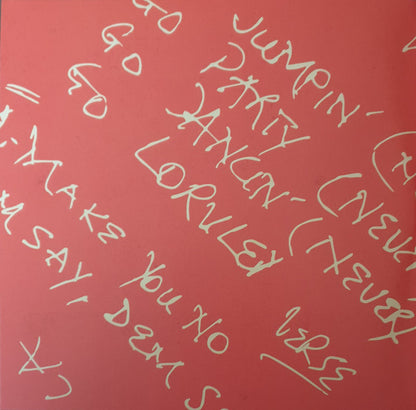 GO
GO
GO
JUMPIN'
PARTY (NEVE
DANCIN' (NEVER
LORULEY
MAKE YOU NO
SAY, DEM S
VERSE